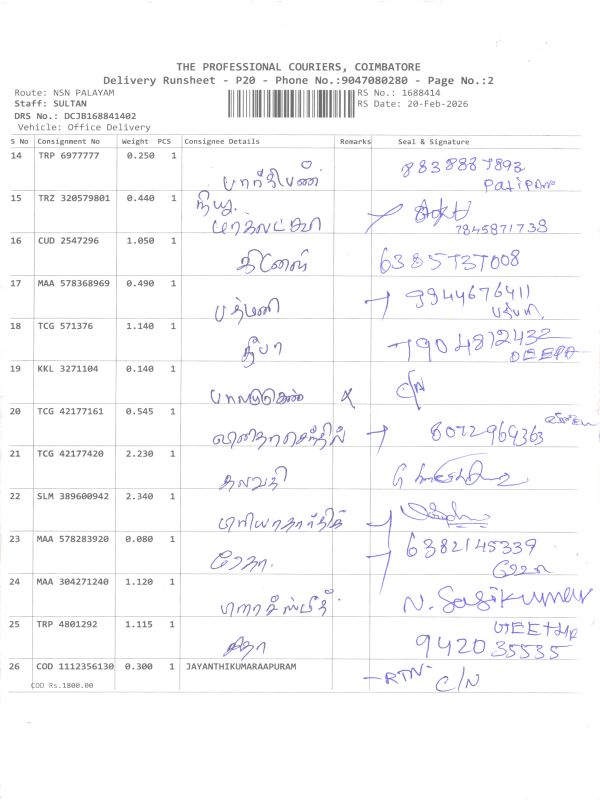 THE PROFESSIONAL COURIERS, COIMBATORE
Delivery Runsheet - P20 - Phone No.:9047080280 - Page No.:2
Route: NSN PALAYAM RS No.: 1688414
Staff: SULTAN RS Date: 20-Feb-2026
DRS No.: DCJB168841402
Vehicle: Office Delivery
S No Consignment No Weight PCS Consignee Details Remarks Seal & Signature
14 TRP 6977777 0.250 1 பார்த்திபன்
15 TRZ 320579801 0.440 1 7845871738
16 CUD 2547296 1.050 1 தினேஷ் 6385737008
17 MAA 578368969 0.490 1 பத்மணி 9944676411
18 TCG 571376 1.140 1 தீபா 7904812432
DEEPA
19 KKL 3271104 0.140 1 C/N
20 TCG 42177161 0.545 1 வினிதாசெந்தில் 8072969363
21 TCG 42177420 2.230 1
22 SLM 389600942 2.340 1
23 MAA 578283920 0.080 1 ரேகா 6382145339
24 MAA 304271240 1.120 1 N. Sasikumar
25 TRP 4801292 1.115 1 GEETHA
942035535
26 COD 1112356130 0.300 1 JAYANTHIKUMARAAPURAM RTN C/N
COD Rs.1800.00